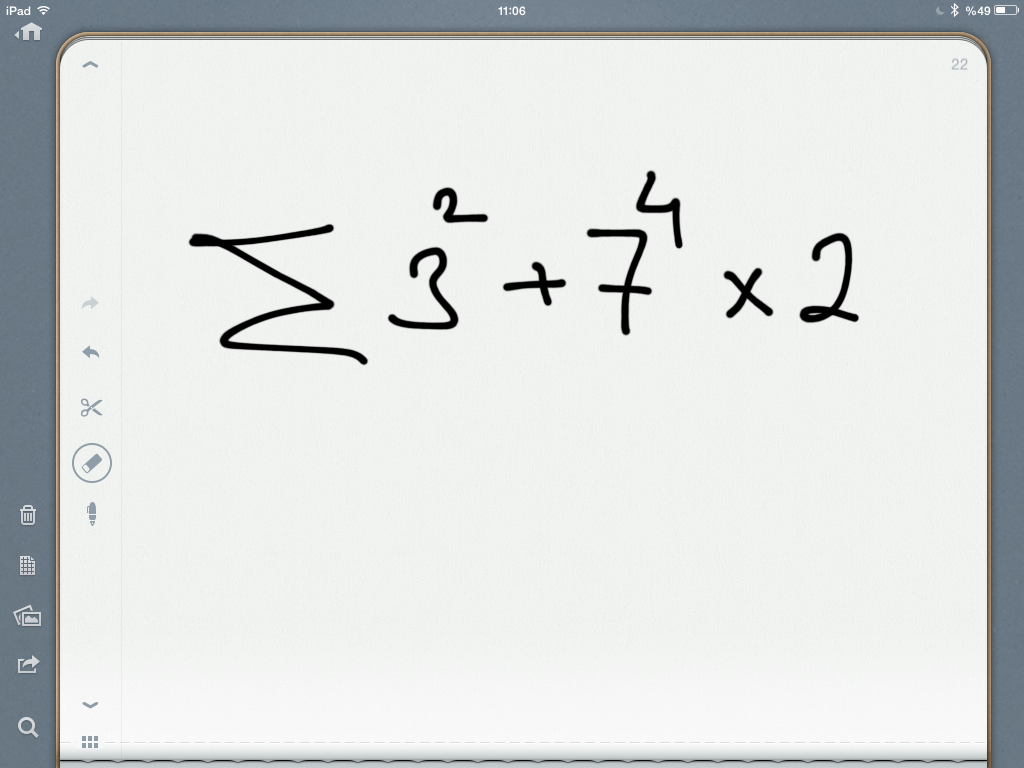 iPad 11:06 %49
22
∑ 3² + 7⁴ x 2